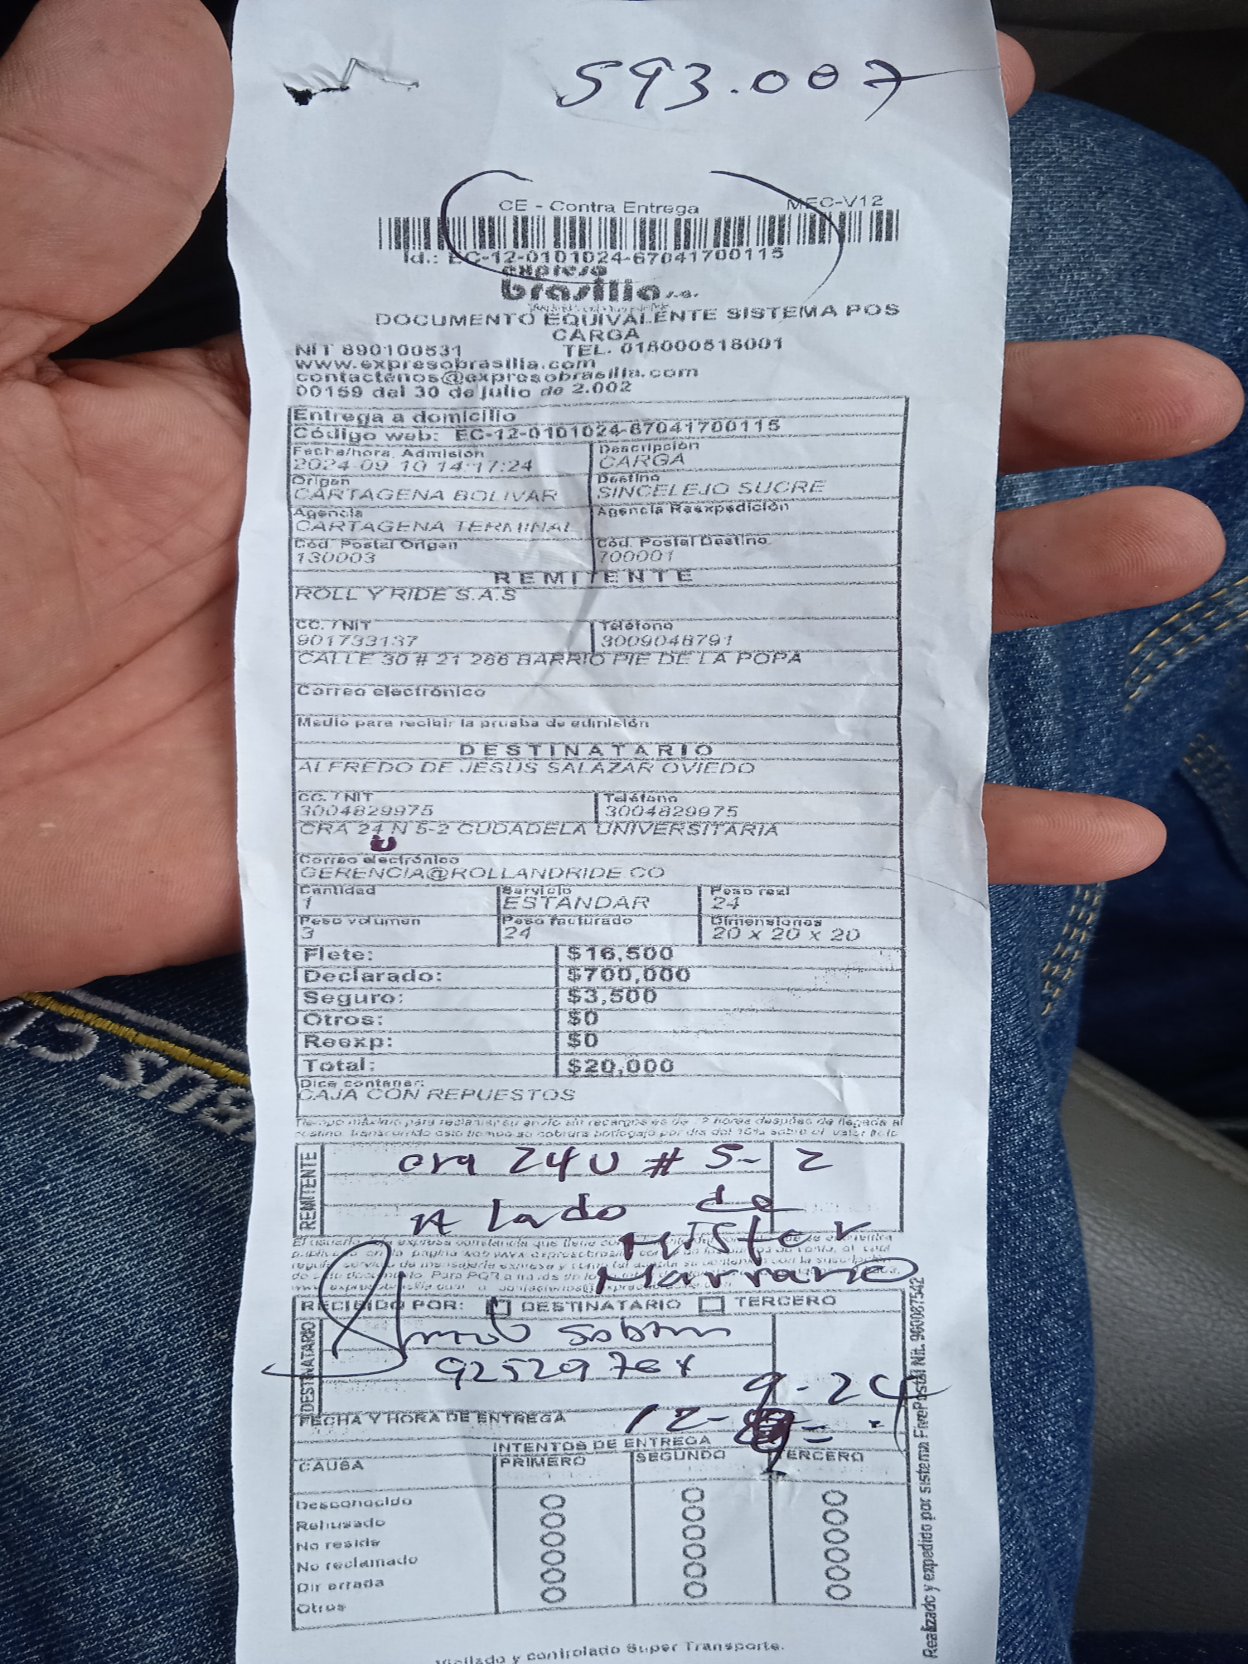 593.007
CE - Contra Entrega MEC-V12
Id.: EC-12-0101024-67041700115
expreso
brasilia s.a.
DOCUMENTO EQUIVALENTE SISTEMA POS
CARGA
NIT 890100531 TEL. 018000518001
www.expresobrasilia.com
contactenos@expresobrasilia.com
00159 del 30 de julio de 2.002
Entrega a domicilio
Código web: EC-12-0101024-67041700115
Fecha/hora Admisión Descripción
2024-09-10 14:17:24 CARGA
Origen Destino
CARTAGENA BOLIVAR SINCELEJO SUCRE
Agencia Agencia Reexpedición
CARTAGENA TERMINAL
Cód. Postal Origen Cód. Postal Destino
130003 700001
REMITENTE
ROLL Y RIDE S.A.S
CC. / NIT Teléfono
901733137 3009048791
CALLE 30 # 21 286 BARRIO PIE DE LA POPA
Correo electrónico
Medio para recibir la prueba de admisión
DESTINATARIO
ALFREDO DE JESUS SALAZAR OVIEDO
CC. / NIT Teléfono
3004829975 3004829975
CRA 24 N 5-2 CUDADELA UNIVERSITARIA
U
Correo electrónico
GERENCIA@ROLLANDRIDE CO
Cantidad Servicio Peso real
1 ESTANDAR 24
Peso volumen Peso facturado Dimensiones
3 24 20 x 20 x 20
Flete: $16,500
Declarado: $700,000
Seguro: $3,500
Otros: $0
Reexp: $0
Total: $20,000
Dice contener:
CAJA CON REPUESTOS
REMITENTE
cra 24U # 5-2
A lado de
Mister
Marrano
RECIBIDO POR: DESTINATARIO TERCERO
DESTINATARIO
FECHA Y HORA DE ENTREGA 12-
9-24
INTENTOS DE ENTREGA
CAUSA PRIMERO SEGUNDO TERCERO
Desconocido
Rehusado
No reside
No reclamado
Dir errada
Otros
Vigilado y controlado Super Transporte.
Realizado y expedido por sistema FivePostal Nit. 900087542